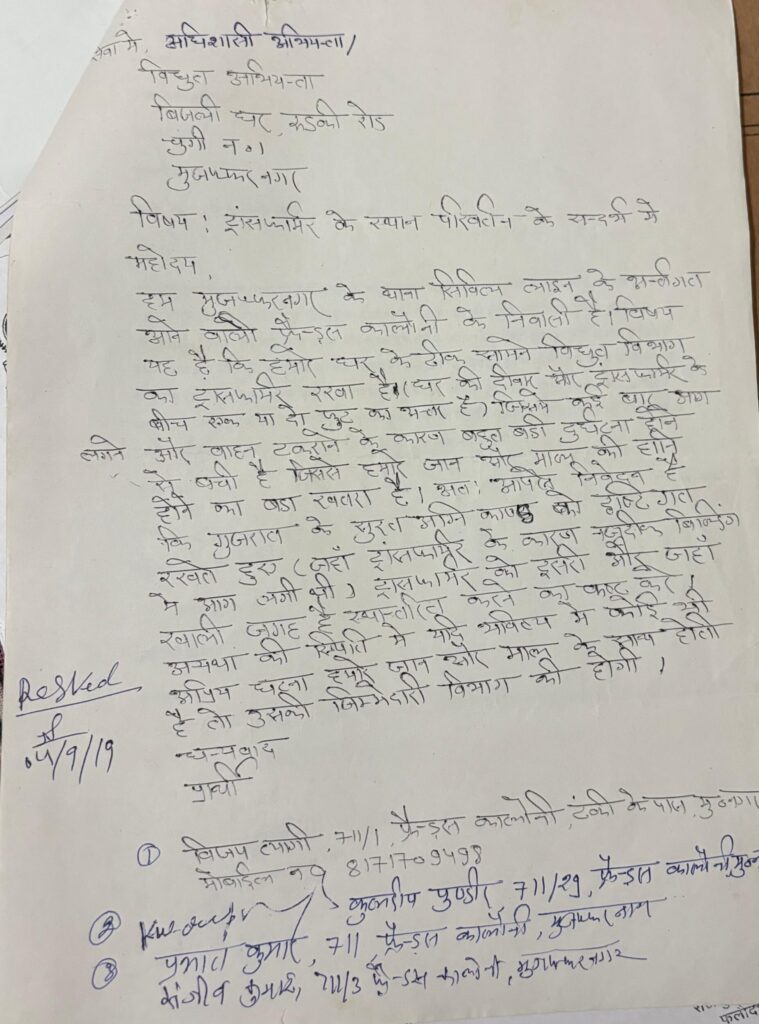 सेवा मे, अधिशासी अभियन्ता/
विधुत अभियन्ता
बिजली घर, रूडकी रोड
चुंगी न०1
मुजफ्फरनगर
विषय : ट्रांसफार्मर के स्थान परिवर्तन के सन्दर्भ मे
महोदय,
हम मुजफ्फरनगर के थाना सिविल लाइन के अन्तर्गत
आने वाली फ्रैन्ड्स कालौनी के निवासी है। विषय
यह है कि हमारे घर के ठीक सामने विधुत विभाग
का ट्रांसफार्मर रखा है। (घर की दीवार और ट्रांसफार्मर के
बीच एक या दो फुट का अन्तर है) जिसमे कई बार आग
लगने और वाहन टकराने के कारण बहुत बडी दुर्घटना होने
से बची है जिससे हमारे जान और माल की हानि
होने का बडा खतरा है। अतः आपसे निवेदन है
कि गुजरात के सूरत अग्नि काण्ड को दृष्टिगत
रखते हुए (जहाँ ट्रांसफार्मर के कारण नजदीक बिल्डिंग
मे आग लगी थी) ट्रांसफार्मर को दूसरी ओर जहाँ
खाली जगह है स्थान्तरित करने का कष्ट करे।
अन्यथा की स्थिति मे यदि भविष्य मे कोई भी
अप्रिय घटना हमारे जान और माल के साथ होती
है तो उसकी जिम्मेदारी विभाग की होगी।
धन्यवाद
प्रार्थी
Resved
05/9/19
① विजय त्यागी, 711/1, फ्रैन्ड्स कालोनी, टंकी के पास, मु०नगर
मोबाईल न० 8171709498
② कुलदीप पुण्डीर, 711/29, फ्रैन्ड्स कालौनी,
③ प्रभात कुमार, 711 फ्रैन्ड्स कालौनी, मुजफ्फरनगर
संजीव कुमार, 711/3 फ्रैन्ड्स कालौनी, मुजफ्फरनगर